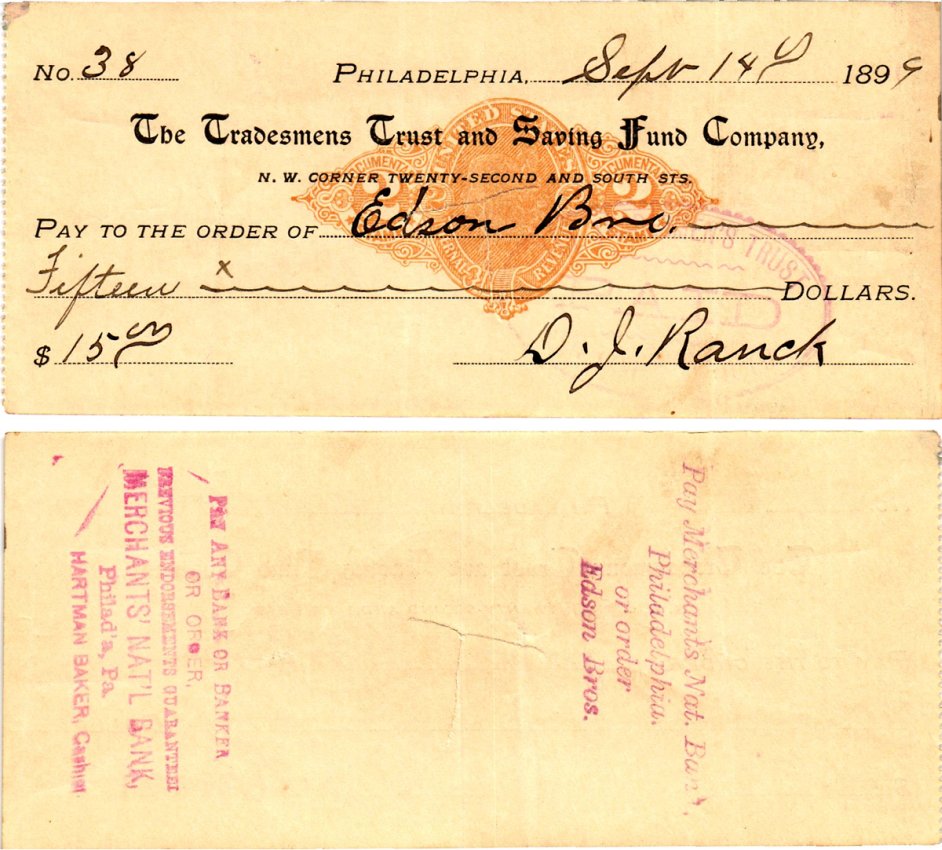 No. 38 PHILADELPHIA, Sept 14th 1899
The Tradesmens Trust and Saving Fund Company,
N. W. CORNER TWENTY-SECOND AND SOUTH STS.
UNITED STATES
DOCUMENTARY
2 2
INTERNAL REVENUE
PAY TO THE ORDER OF Edson Bro.
Fifteen x DOLLARS.
TRUST
PAID
$ 15 00 D. J. Ranck
PAY ANY BANK OR BANKER
OR ORDER,
PREVIOUS ENDORSEMENTS GUARANTEED
MERCHANTS' NAT'L BANK,
Philad'a, Pa.
HARTMAN BAKER, Cashier.
Pay Merchants Nat. Bank,
Philadelphia.
or order
Edson Bros.